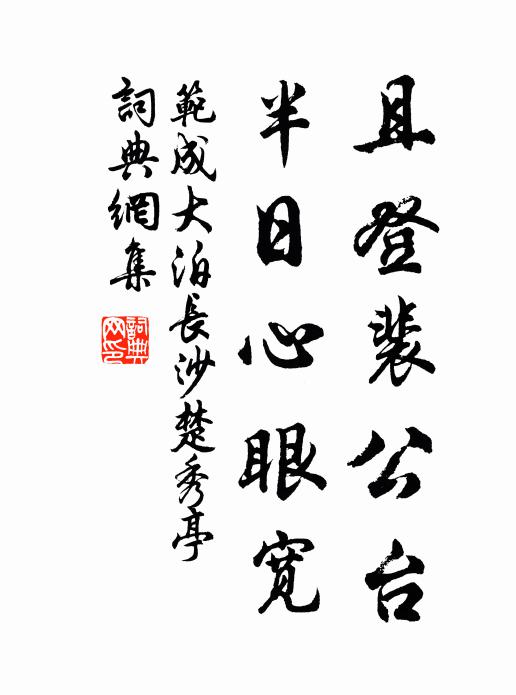 且登裴公台
半日心眼宽
範成大泊長沙楚秀亭
詞典網集
詞典网印